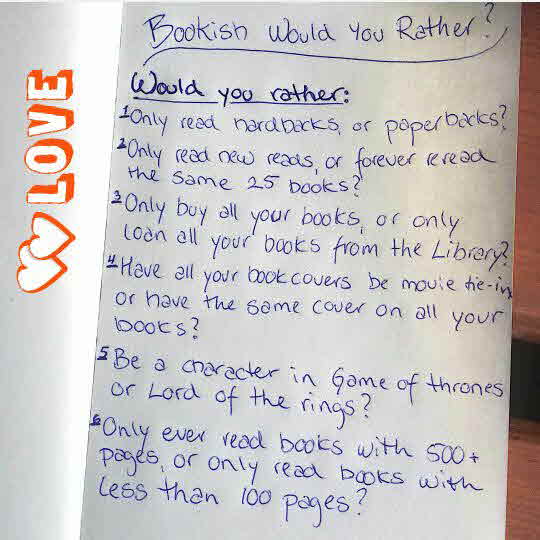 Bookish Would You Rather?
Would you rather:
1 Only read hardbacks, or paperbacks?
2 Only read new reads, or forever reread
the same 25 books?
3 Only buy all your books, or only
loan all your books from the Library?
4 Have all your book covers be movie tie-in
or have the same cover on all your
books?
5 Be a character in Game of thrones
or Lord of the rings?
6 Only ever read books with 500+
pages, or only read books with
less than 100 pages?
LOVE